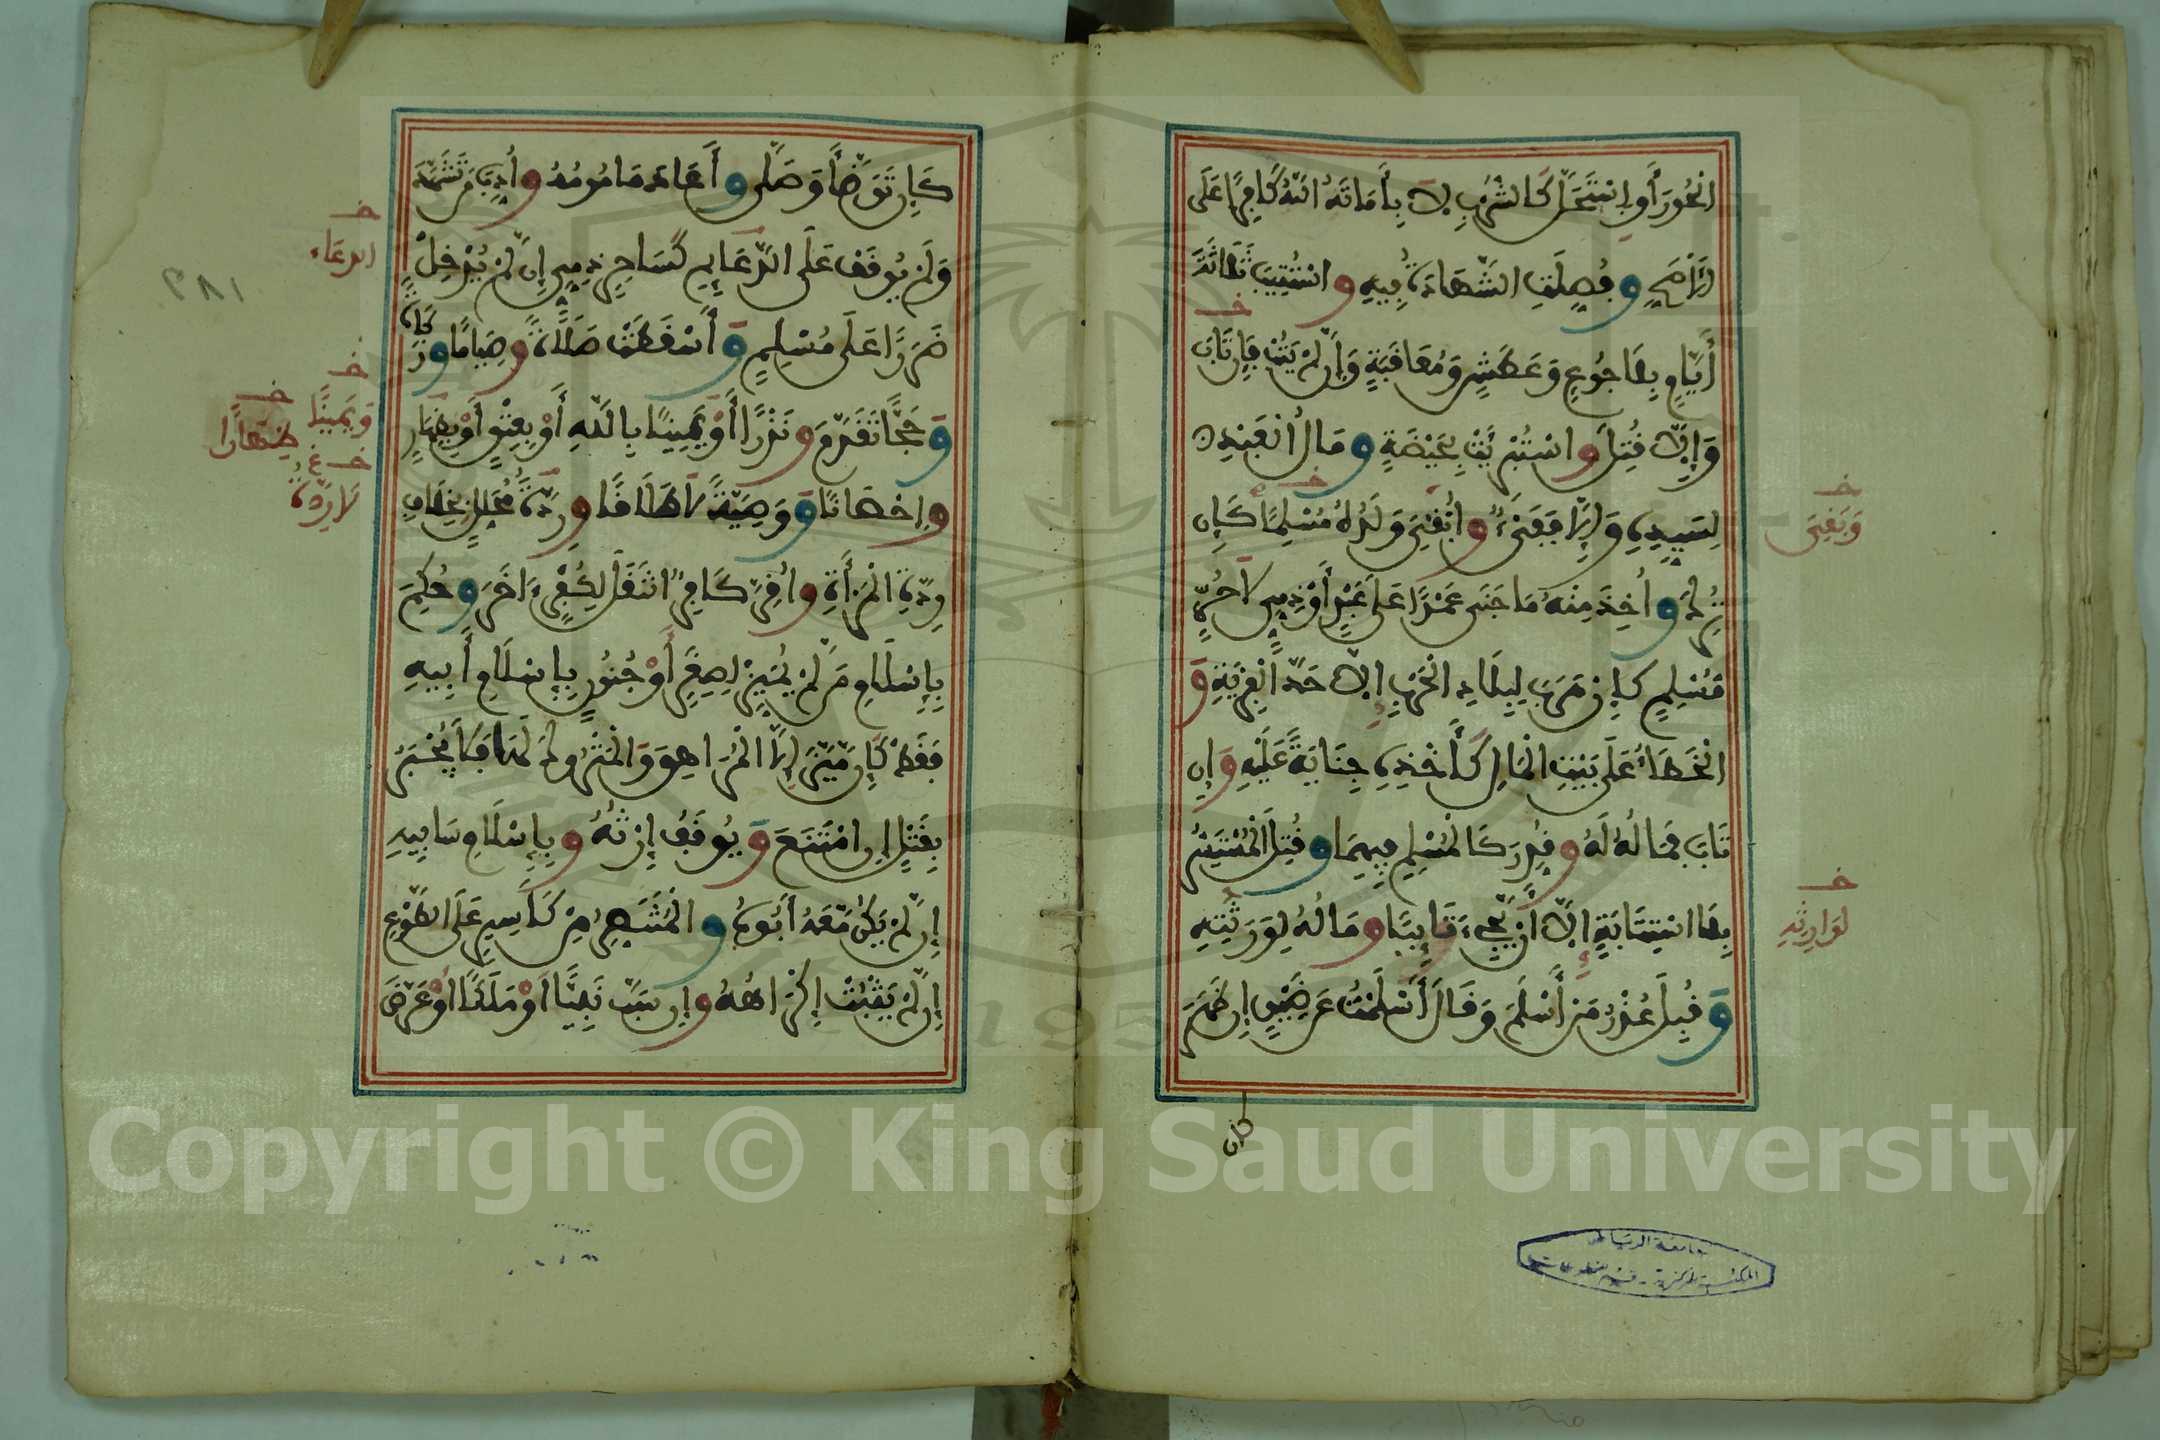 الْحُورَ أَوِ اسْتَحَلَّ كَالشُّرْبِ لَا بِأَمَاتَهُ اللَّهُ كَافِرًا عَلَى
الْأَصَحِّ وَفُصِّلَتِ الشَّهَادَةُ فِيهِ وَاسْتُتِيبَ ثَلَاثَةَ
أَيَّامٍ بِلَا جُوعٍ وَعَطَشٍ وَمُعَاقَبَةٍ وَإِنْ لَمْ يَتُبْ فَإِنْ تَابَ
وَإِلَّا قُتِلَ وَاسْتُبْرِئَتْ بِحَيْضَةٍ وَمَالُ الْعَبْدِ
لِسَيِّدِهِ وَإِلَّا فَفَيْءٌ وَابْقِيَ وَلَدُهُ مُسْلِمًا كَأَنْ
تُرِكَ وَأُخِذَ مِنْهُ مَا جَنَى عَمْدًا عَلَى عَبْدٍ أَوْ ذِمِّيٍّ لَا حُرٍّ
مُسْلِمٍ كَإِنْ هَرَبَ لِبِلَادِ الْحَرْبِ إِلَّا حَدَّ الْفِرْيَةِ وَ
الْخَطَأُ عَلَى بَيْتِ الْمَالِ كَأَخْذِهِ جِنَايَةً عَلَيْهِ وَإِنْ
تَابَ فَمَالُهُ لَهُ وَقُدِّرَ كَالْمُسْلِمِ فِيهِمَا وَقُتِلَ الْمُسْتَسِرُّ
بِلَا اسْتِتَابَةٍ إِلَّا أَنْ يَجِيءَ تَائِبًا وَمَالُهُ لِوَرَثَتِهِ
وَقُبِلَ عُذْرُ مَنْ أَسْلَمَ وَقَالَ أَسْلَمْتُ عَنْ ضِيقٍ إِنْ ظَهَرَ
خـ
وَبَقِيَ
خـ
لِوَارِثِهِ
كأن
جامعة الرياض
المكتبة المركزية - قسم المخطوطات
كَأَنْ تَوَضَّأَ وَصَلَّى وَأَعَادَ مَأْمُومُهُ وَأُدِّبَ مَنْ تَشَهَّدَ
وَلَمْ يُوقَفْ عَلَى الدَّعَائِمِ كَسَاحِرٍ ذِمِّيٍّ إِنْ لَمْ يُدْخِلْ
ضَرَرًا عَلَى مُسْلِمٍ وَأَسْقَطَتْ صَلَاةً وَصِيَامًا وَزَكَاةً
وَحَجًّا تَقَدَّمَ وَنَذْرًا أَوْ يَمِينًا بِاللَّهِ أَوْ بِعِتْقٍ أَوْ بِظِهَارٍ
وَإِحْصَانًا وَوَصِيَّةً لَا طَلَاقًا وَرِدَّةُ مُحَلِّلٍ بِخِلَافِ
رِدَّةِ الْمَرْأَةِ وَأُقِرَّ كَافِرٌ انْتَقَلَ لِكُفْرٍ آخَرَ وَحُكِمَ
بِإِسْلَامِ مَنْ لَمْ يُمَيِّزْ لِصِغَرٍ أَوْ جُنُونٍ بِإِسْلَامِ أَبِيهِ
فَقَطْ كَأَنْ مَيَّزَ إِلَّا الْمُرَاهِقَ وَالْمَتْرُوكَ لَهَا فَلَا يُجْبَرُ
بِقَتْلٍ إِنِ امْتَنَعَ وَيُوقَفُ إِرْثُهُ وَبِإِسْلَامِ سَابِيهِ
إِنْ لَمْ يَكُنْ مَعَهُ أَبُوهُ وَالْمُتَنَصِّرُ مِنْ كَأَسِيرٍ عَلَى الطَّوْعِ
إِنْ لَمْ يَثْبُتْ إِكْرَاهُهُ وَإِنْ سَبَّ نَبِيًّا أَوْ مَلَكًا أَوْ عَرَّضَ
خـ
الدعاء
٣٨١
خـ
وَيَمِينًا
خـ
ظِهَارًا
خـ غ
لَا رِدَّةُ
Copyright © King Saud University